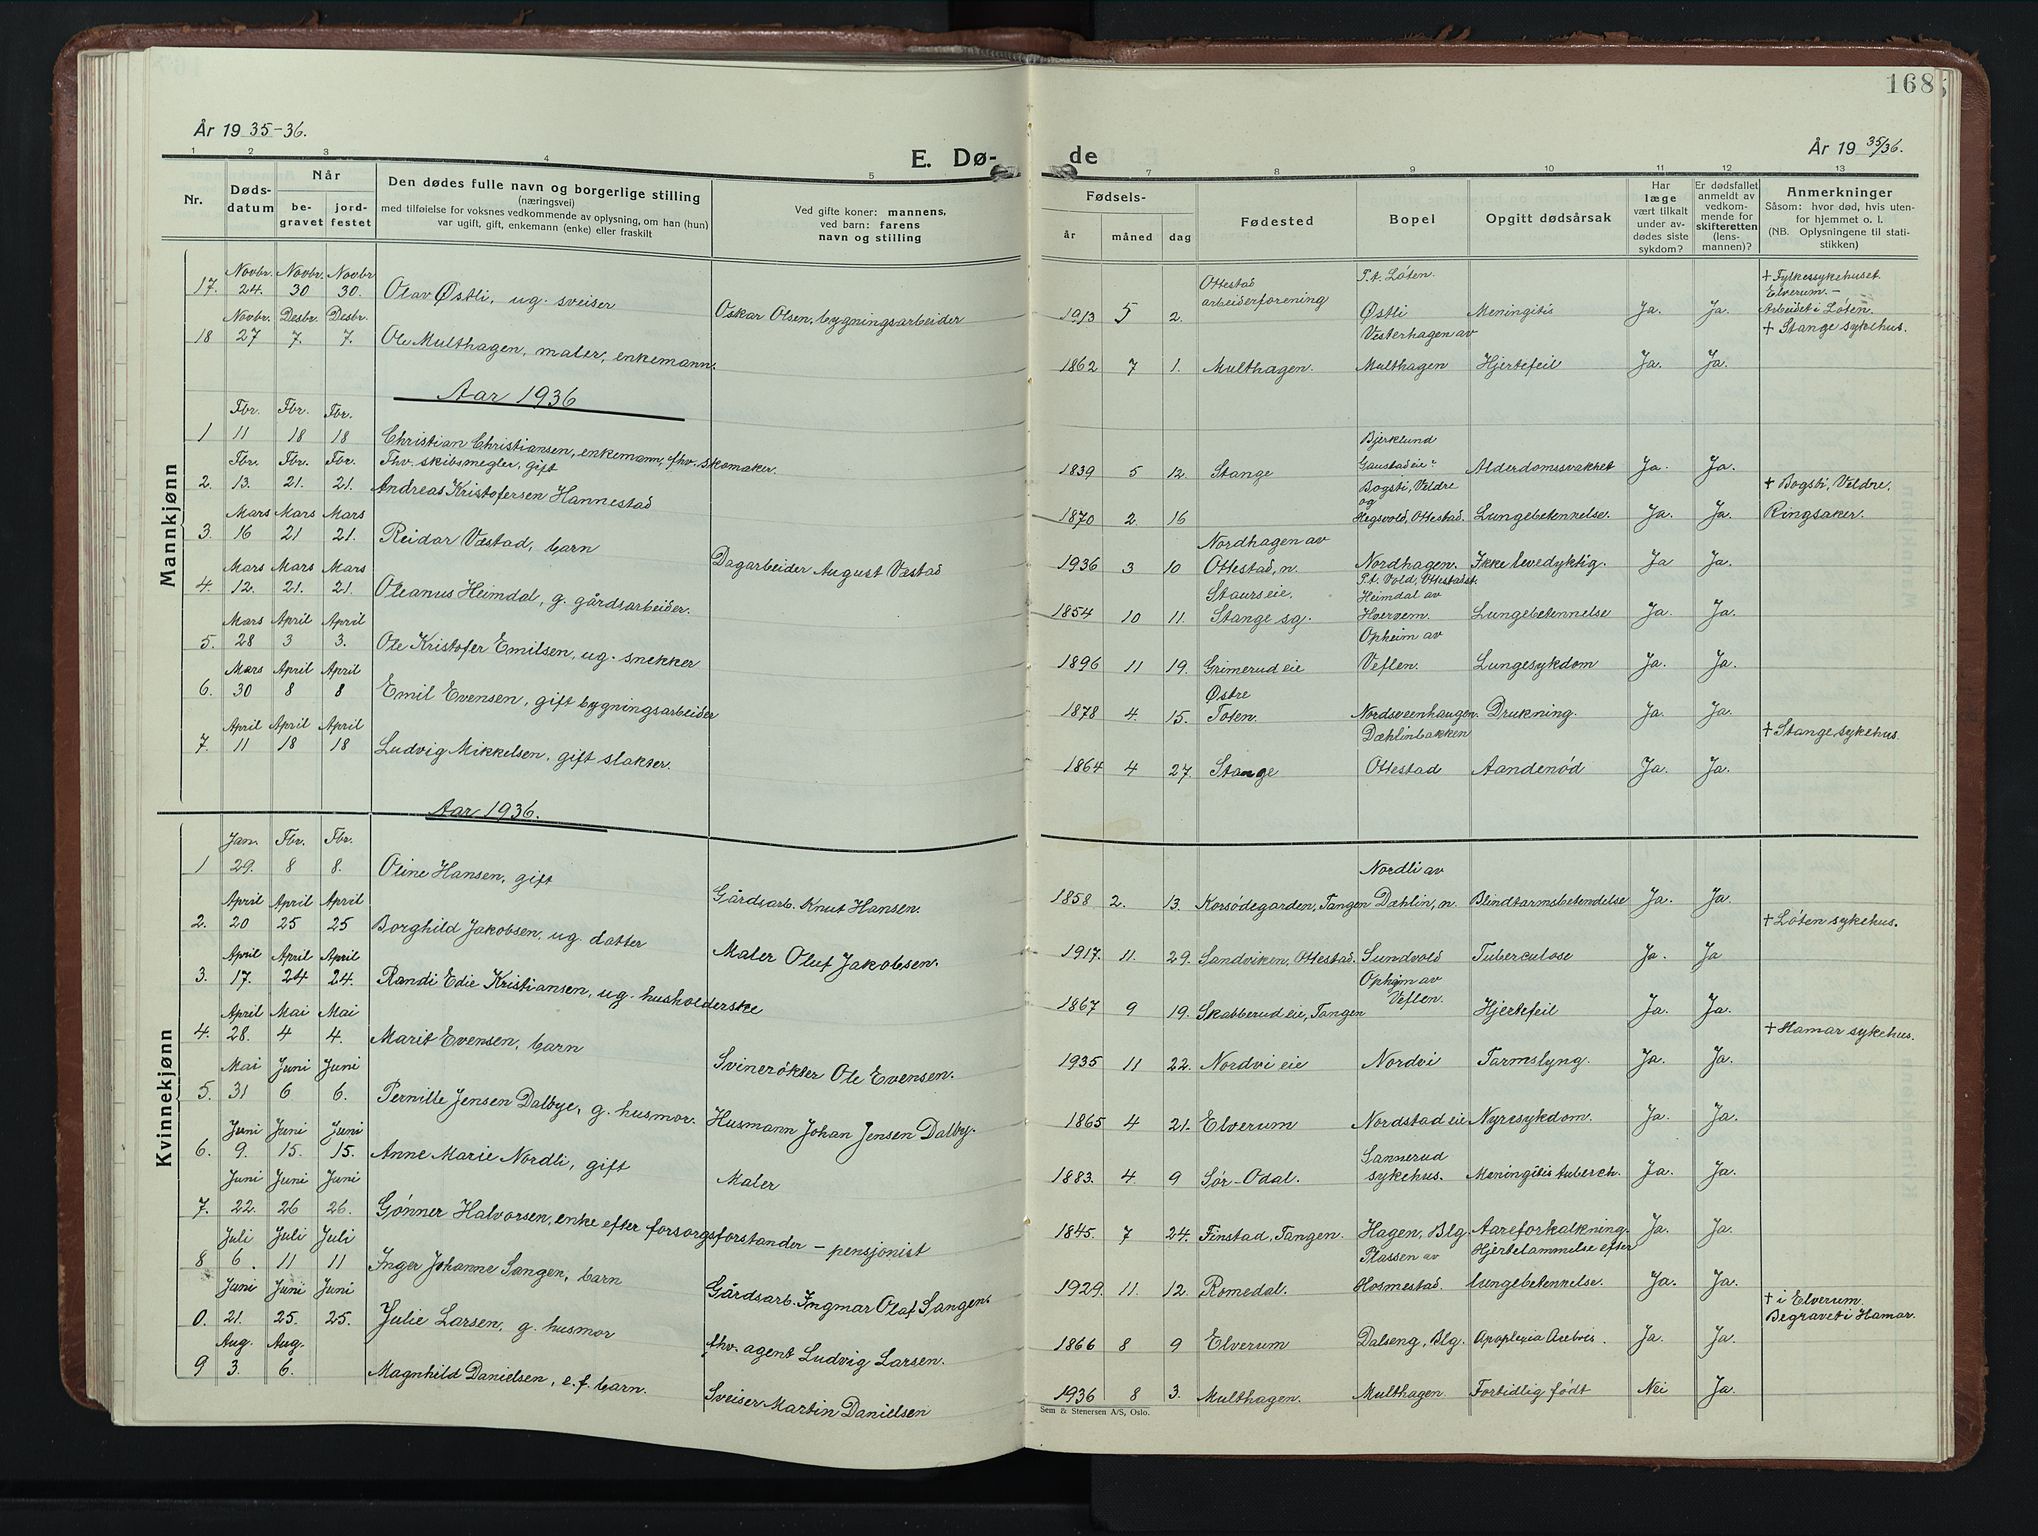 168
År 1935-36.
E. Dø-
de
År 1935/36.
1 2 3 4 5 7 8 9 10 11 12 13
Nr.
Døds-
datum
Når
be-
gravet
jord-
festet
Den dødes fulle navn og borgerlige stilling
(næringsvei)
med tilføielse for voksnes vedkommende av oplysning, om han (hun)
var ugift, gift, enkemann (enke) eller fraskilt
Ved gifte koner: mannens,
ved barn: farens
navn og stilling
Fødsels-
år måned dag
Fødested
Bopel
Opgitt dødsårsak
Har
læge
vært tilkalt
under av-
dødes siste
sykdom?
Er dødsfallet
anmeldt av
vedkom-
mende for
skifteretten
(lens-
mannen)?
Anmerkninger
Såsom: hvor død, hvis uten-
for hjemmet o. l.
(NB. Oplysningene til stati-
stikken)
Mannkjønn
Novbr. Novbr. Novbr Ottestad P.t. Løten. + Fylkessykehuset
17. 24. 30 30. Olav Østli, ug. sveiser Oskar Olsen, bygningsarbeider 1913 5 2. arbeiderforening Østli Meningitis Ja. Ja. Elverum. – Arbeidet i Løten.
Novbr. Desbr. Desbr. Vesterhagen av + Stange sykehus.
18 27 7. 7. Ole Multhagen, maler, enkemann. 1862 7 1. Multhagen. Multhagen Hjertefeil Ja. Ja.
Aar 1936
Fbr. Fbr. Fbr. Bjerklund
1 11 18 18 Christian Christiansen, enkemann, fhv. skomaker. 1839 5 12. Stange Gaustadeie Alderdomssvakhet Ja. Ja.
Fbr. Fbr. Fbr. Fhv. skibsmegler, gift Bogsti, Veldre og + Bogsti, Veldre,
2. 13. 21. 21. Andreas Kristofersen Hannestad 1870 2. 16 Hegsvold, Ottestad. Lungebetennelse. Ja. Ja. Ringsaker.
Mars Mars Mars Nordhagen av
3. 16 21 21. Reidar Væstad, barn Dagarbeider August Væstad 1936 3 10 Ottestad, n. Nordhagen. Ikke levedyktig. Ja Ja.
Mars Mars Mars Staurseie. P.t. Vold, Ottestad. Heimdal av
4. 12. 21. 21. Oleanus Heimdal, g. gårdsarbeider. 1854 10 11. Stange sg. Hvervem. Lungebetennelse Ja. Ja.
Mars April April Opheim av
5. 28 3 3. Ole Kristofer Emilsen, ug. snekker 1896 11 19. Grimerud eie Veflen. Lungesykdom Ja. Ja.
Mars April April Østre
6. 30 8 8 Emil Evensen, gift bygningsarbeider 1878 4. 15. Toten. Nordsveenhaugen. Drukning. Ja. Ja.
April April April Dæhlinbakken + Stange sykehus.
7. 11 18 18 Ludvig Mikkelsen, gift slakter. 1864 4 27. Stange Ottestad Aandenød Ja. Ja.
Aar 1936.
Kvinnekjønn
Jan. Fbr. Fbr. Nordli av
1 29. 8 8. Oline Hansen, gift Gårdsarb. Knut Hansen. 1858 2. 13. Korsødegarden, Tangen Dæhlin, n. Blindtarmsbetendelse Ja. Ja.
April April April + Løten sykehus.
2. 20 25 25 Borghild Jakobsen, ug. datter Maler Oluf Jakobsen. 1917. 11. 29. Sandviken, Ottestad. Sundvold Tuberculose Ja. Ja
April April April Opheim av
3. 17. 24 24. Randi Edie Kristiansen, ug. husholderske 1867 9 19. Skabberud eie, Tangen Veflen. Hjertefeil Ja. Ja.
April Mai Mai + Hamar sykehus.
4. 28. 4 4. Marit Evensen, barn Svinerøkter Ole Evensen. 1935 11 22. Nordvi eie Nordvi Tarmslyng. Ja. Ja.
Mai Juni Juni
5. 31 6 6. Pernille Jensen Dalbye, g. husmor. Husmann Johan Jensen Dalby. 1865 4 21. Elverum Nordstad eie Nyresykdom. Ja. Ja.
Juni Juni Juni Sannerud
6. 9. 15. 15. Anne Marie Nordli, gift Maler 1883. 4 9 Sør-Odal. sykehus. Meningitis tuberch. Ja. Ja.
Juni Juni Juni
7. 22. 26 26. Gønner Halvorsen, enke efter forsorgsforstander – pensjonist 1845. 7 24. Finstad, Tangen. Hagen, Blg. Aareforkalkning. Ja. Ja.
Juli Juli Juli Plassen av Hjertelammelse efter
8 6. 11 11 Inger Johanne Sangen, barn Gårdsarb. Ingmar Olaf Sangen. 1929. 11. 12. Romedal. Hosmestad. lungebetennelse. Ja. Ja.
Juni Juni Juni + i Elverum.
0. 21. 25. 25. Julie Larsen, g. husmor fhv. agent Ludvig Larsen. 1866 8 9 Elverum Dalseng, Blg. Apoplexia Ja. Ja. Begravet i Hamar.
Aug. Aug.
9 3. 6. Magnhild Danielsen, e.f. barn. Sveiser Martin Danielsen 1936 8 3. Multhagen. Multhagen. Fortidlig født Nei Ja.
Sem & Stenersen A/S, Oslo.